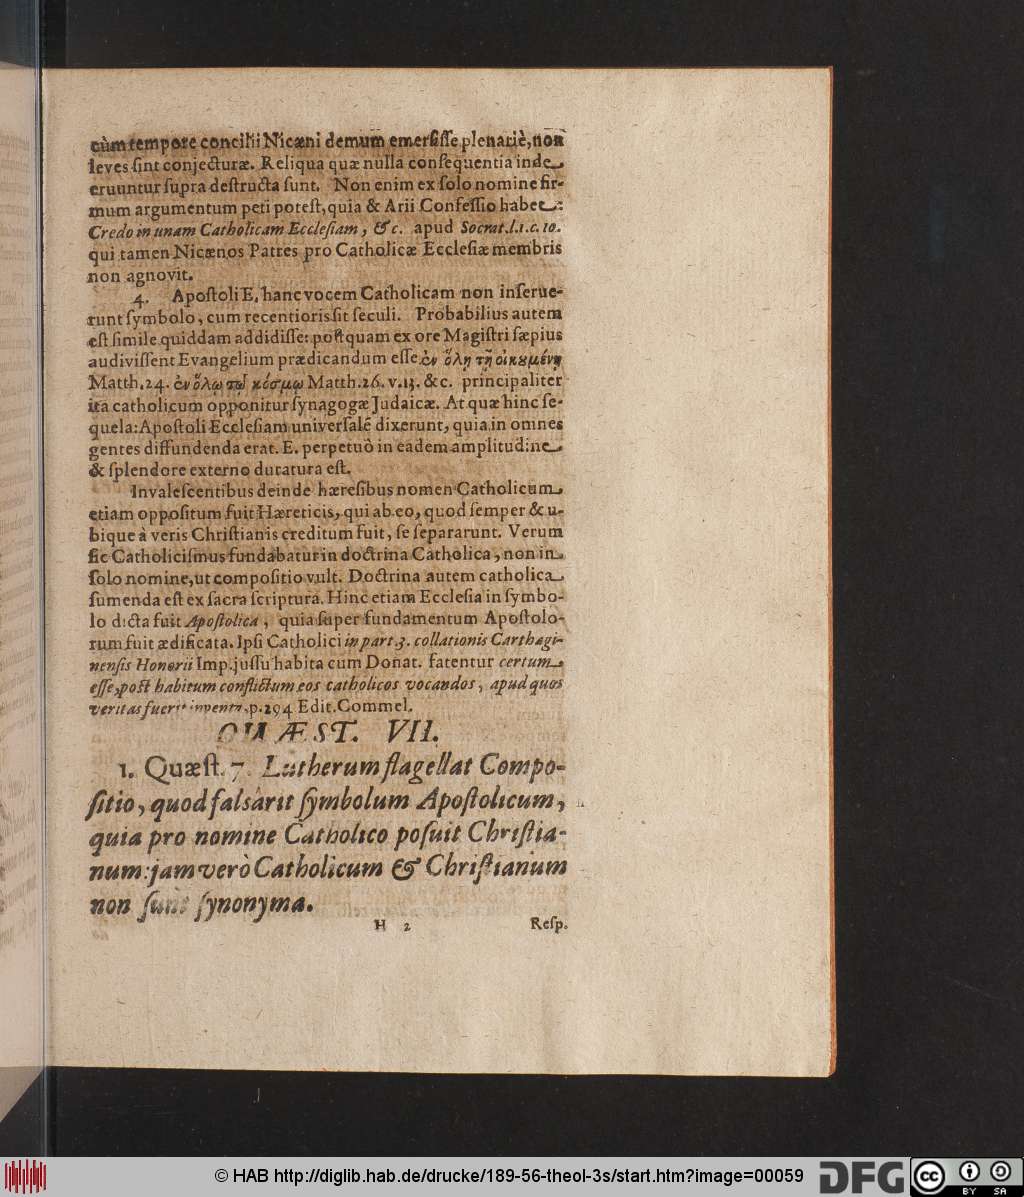 cùm tempore concilii Nicæni demum emersiſſe plenariè, non
leves ſint conjecturæ. Reliqua quæ nulla conſequentia inde
eruuntur ſupra deſtructa ſunt. Non enim ex ſolo nomine fir-
mum argumentum peti poteſt, quia & Arii Confeſſio habet:
Credo in unam Catholicam Eccleſiam, &c. apud Socrat. l. 1. c. 10.
qui tamen Nicænos Patres pro Catholicæ Eccleſiæ membris
non agnovit.
4. Apoſtoli E. hanc vocem Catholicam non inſerue-
runt ſymbolo, cum recentioris ſit ſeculi. Probabilius autem
eſt ſimile quiddam addidiſſe: poſtquam ex ore Magiſtri ſæpius
audiviſſent Evangelium prædicandum eſſe ἐν ὅλῃ τῇ οἰκȣμένῃ
Matth. 24. ἐν ὅλῳ τῷ κόσμῳ Matth. 26. v. 13. &c. principaliter
ita catholicum opponitur ſynagogæ Judaicæ. At quæ hinc ſe-
quela: Apoſtoli Eccleſiam univerſalẽ dixerunt, quia in omnes
gentes diffundenda erat. E. perpetuò in eadem amplitudine
& ſplendore externo duratura eſt.
Invaleſcentibus deinde hæreſibus nomen Catholicum
etiam oppoſitum fuit Hæreticis, qui ab eo, quod ſemper & u-
bique à veris Chriſtianis creditum fuit, ſe ſepararunt. Verum
ſic Catholiciſmus fundabatur in doctrina Catholica, non in
ſolo nomine, ut compoſitio vult. Doctrina autem catholica
ſumenda eſt ex ſacra ſcriptura. Hinc etiam Eccleſia in ſymbo-
lo dicta fuit Apoſtolica, quia ſuper fundamentum Apoſtolo-
rum fuit ædificata. Ipſi Catholici in part. 3. collationis Carthagi-
nenſis Honorii Imp. juſſu habita cum Donat. fatentur certum
eſſe, poſt habitum conflictum eos catholicos vocandos, apud quos
veritas fuerit inventa. p. 294 Edit. Commel.
QUÆST. VII.
1. Quæſt. 7. Lutherum flagellat Compo-
ſitio, quod falsârit ſymbolum Apoſtolicum,
quia pro nomine Catholico poſuit Chriſtia-
num: jam verò Catholicum & Chriſtianum
non ſunt ſynonyma.
H 2 Reſp.
© HAB http://diglib.hab.de/drucke/189-56-theol-3s/start.htm?image=00059
DFG
cc BY SA